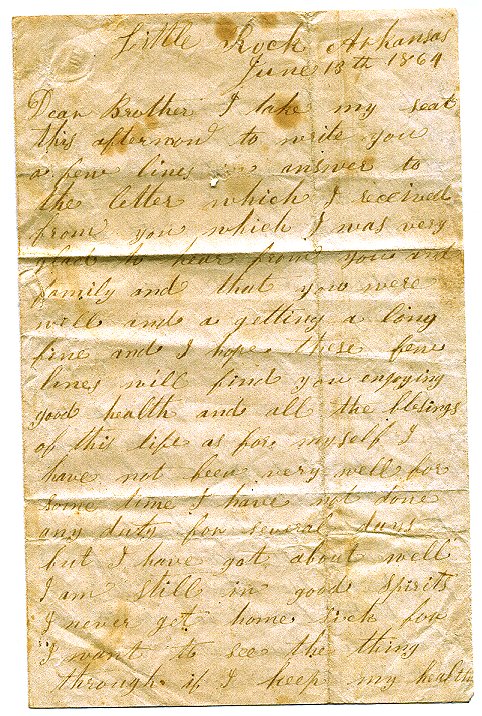 Little Rock Arkansas
June 18th 1864
Dear Brother I take my seat
this afternoon to write you
a few lines in answer to
the letter which I received
from you which I was very
glad to hear from you and
family and that you were
well and a getting a long
fine and I hope these few
lines will find you enjoying
good health and all the blesings
of this life as for myself I
have not been very well for
some time I have not done
any duty for several days
but I have got about well
I am still in good spirits
I never get home sick for
I want to see the thing
through if I keep my health